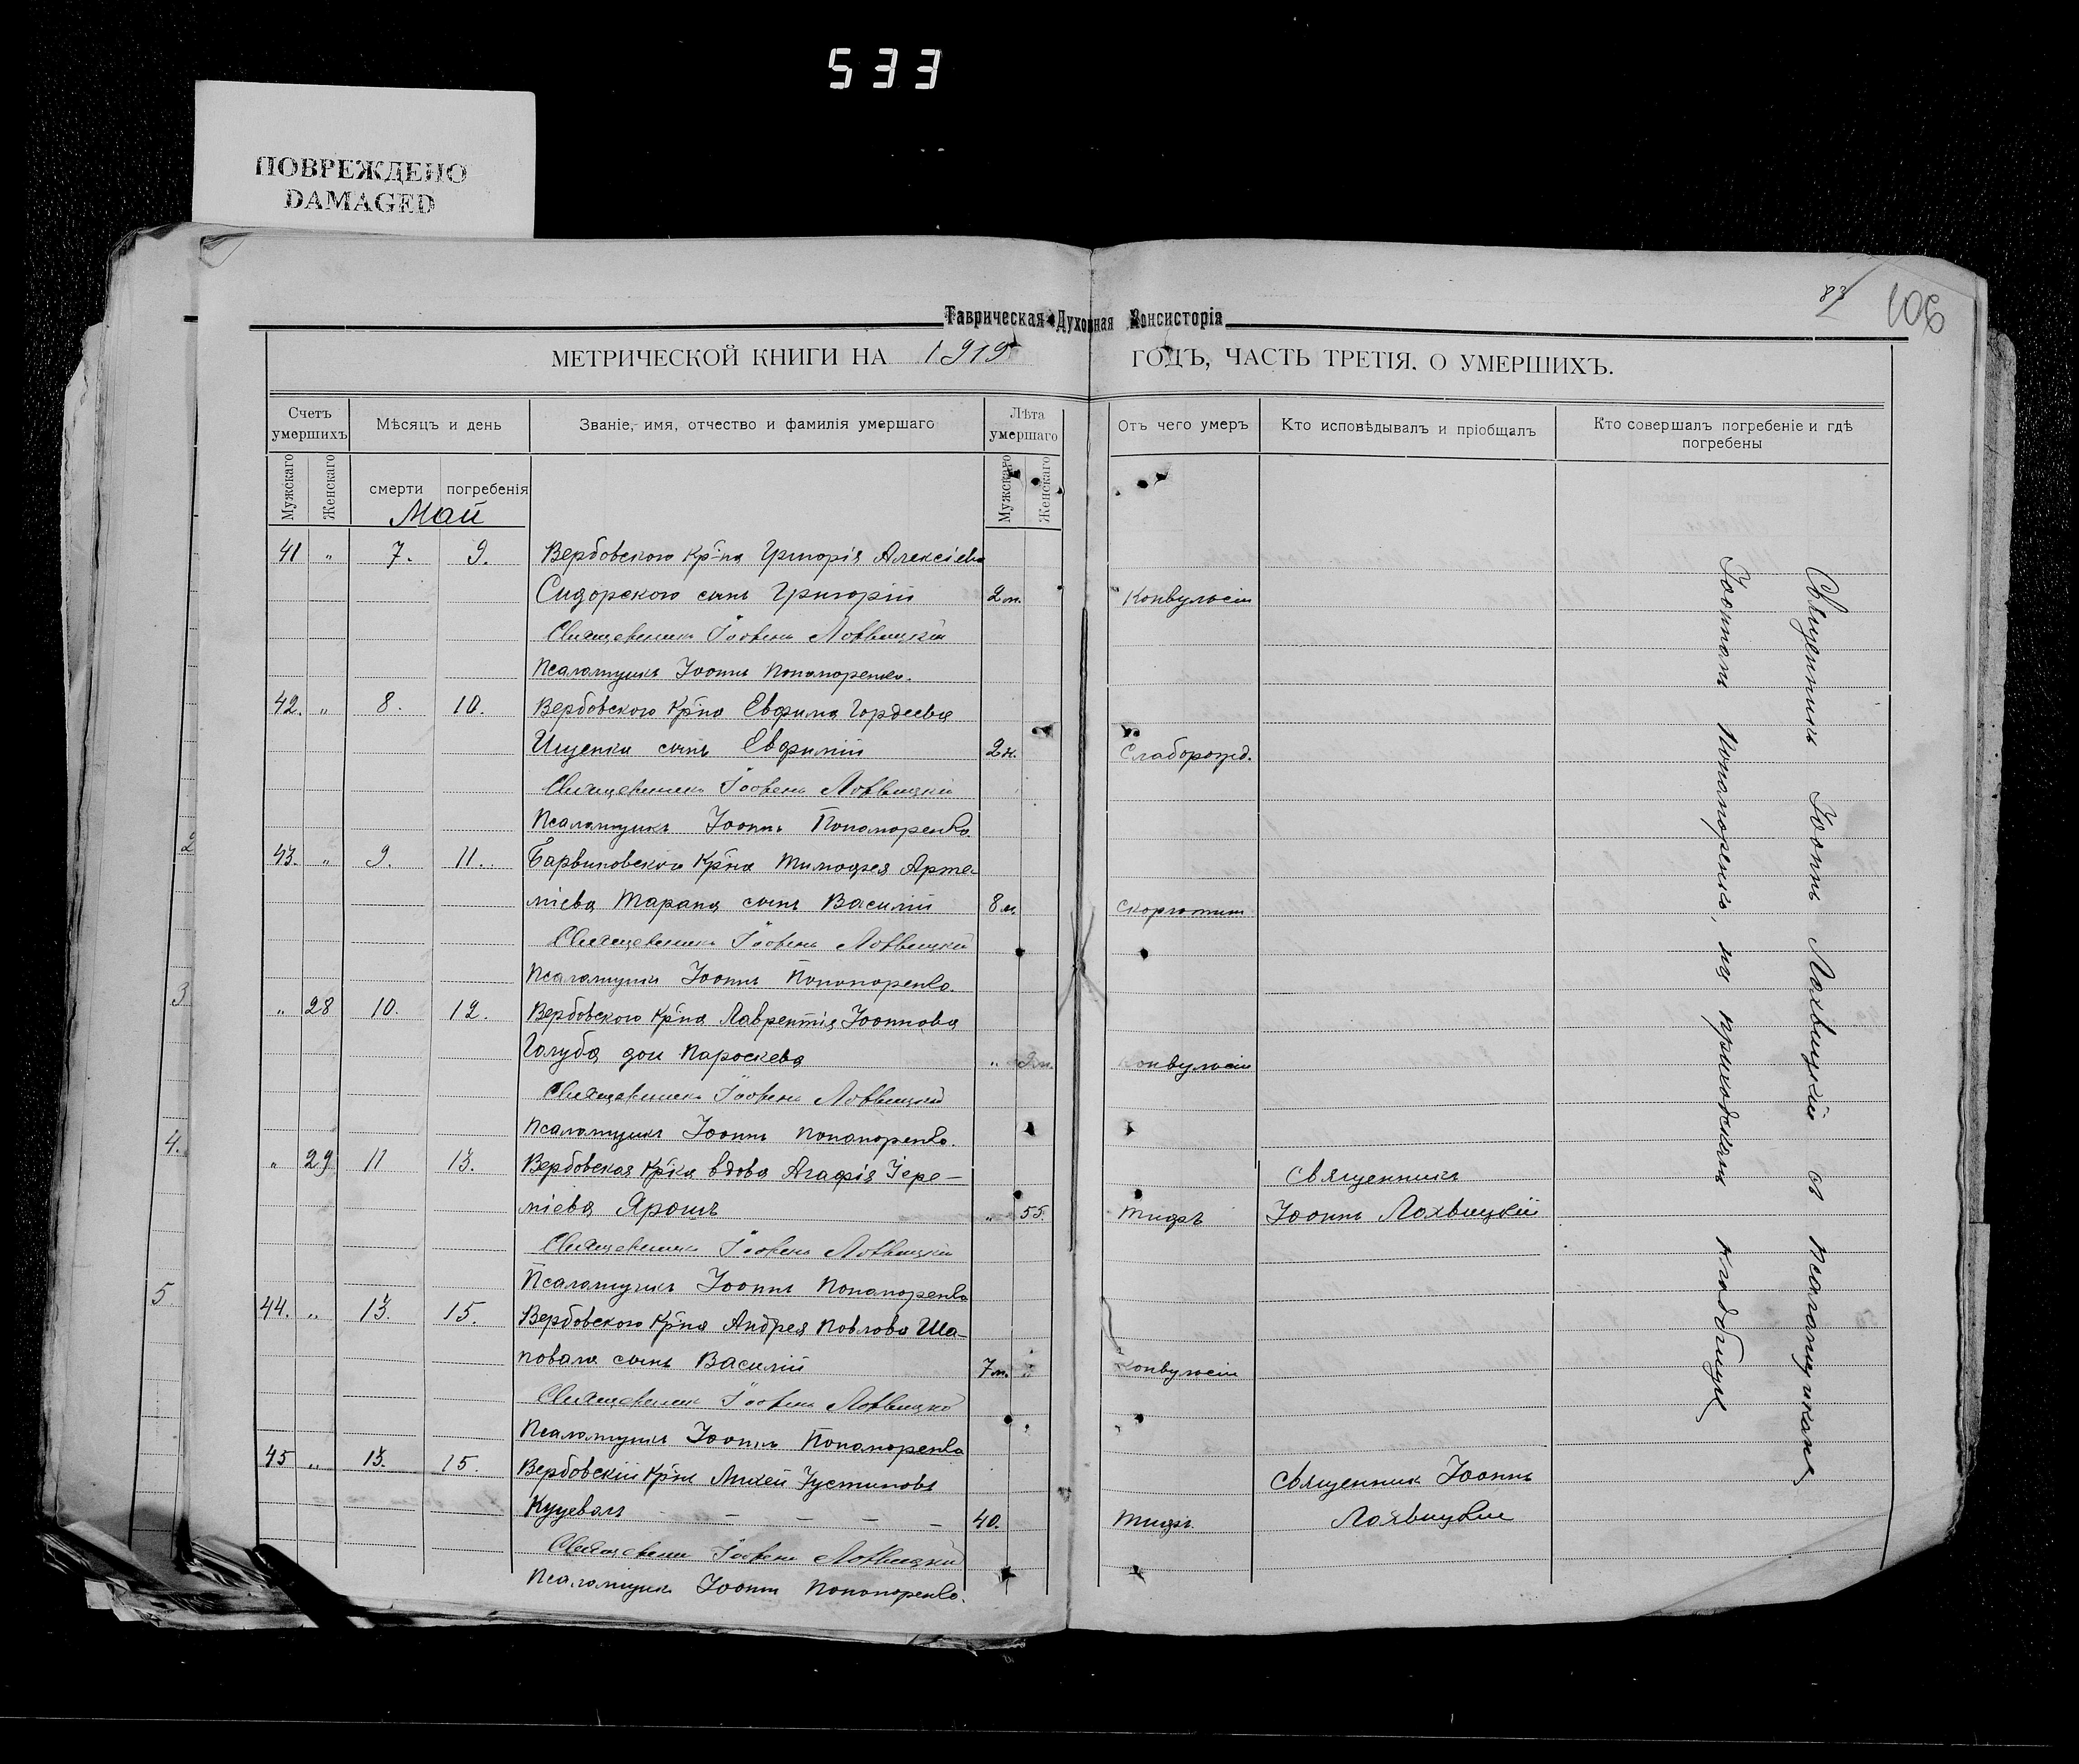 533
ПОВРЕЖДЕНО
DAMAGED
83
106
Таврическая Духовная Консисторія
МЕТРИЧЕСКОЙ КНИГИ НА 1919 ГОДЪ, ЧАСТЬ ТРЕТІЯ, О УМЕРШИХЪ.
Счетъ умершихъ
Мѣсяцъ и день
Званіе, имя, отчество и фамилія умершаго
Лѣта умершаго
Отъ чего умеръ
Кто исповѣдывалъ и пріобщалъ
Кто совершалъ погребеніе и гдѣ погребены
Мужскаго
Женскаго
смерти
погребенія
Мужскаго
Женскаго
Май
41 " 7. 9. Вербовского кр-на Григорія Алексіева
Сидорского сынъ Григорій 2 м. Конвульсіи
Священникъ Іоаннъ Лохвицкій
Псаломщикъ Іоаннъ Пономоренко.
42. " 8. 10. Вербовского кр-на Евфима Гордеева
Ищенки сынъ Евфимій 2 н. Слаборожд.
Священникъ Іоаннъ Лохвицкій
Псаломщикъ Іоаннъ Пономоренко.
43. " 9. 11. Барвиновского кр-на Тимофея Арте-
міева Тарана сынъ Василій 8 м.
Священникъ Іоаннъ Лохвицкій
Псаломщикъ Іоаннъ Пономоренко.
" 28 10. 12. Вербовского кр-на Лаврентія Іоаннова
Голуба дочь Параскева " Конвульсіи
Священникъ Іоаннъ Лохвицкій
Псаломщикъ Іоаннъ Пономоренко.
" 29 11 13. Вербовская кр-ка вдова Агафія Іере-
міева Ярошъ " 55. Тифъ
Священникъ
Іоаннъ Лохвицкій
Священникъ Іоаннъ Лохвицкій
Псаломщикъ Іоаннъ Пономоренко
44. " 13. 15. Вербовского кр-на Андрея Павлова Ша-
повала сынъ Василій 7 м. " Конвульсіи
Священникъ Іоаннъ Лохвицкій
Псаломщикъ Іоаннъ Пономоренко
45 " 13. 15. Вербовскій кр-нъ Михей Устиновъ
Куцевалъ 40. Тифъ
Священникъ Іоаннъ
Лохвицкій
Священникъ Іоаннъ Лохвицкій
Псаломщикъ Іоаннъ Пономоренко.
Священникъ Іоаннъ Лохвицкій съ Псаломщикомъ
Іоанномъ Пономоренко, на приходскомъ кладбищѣ
2
3
4.
5